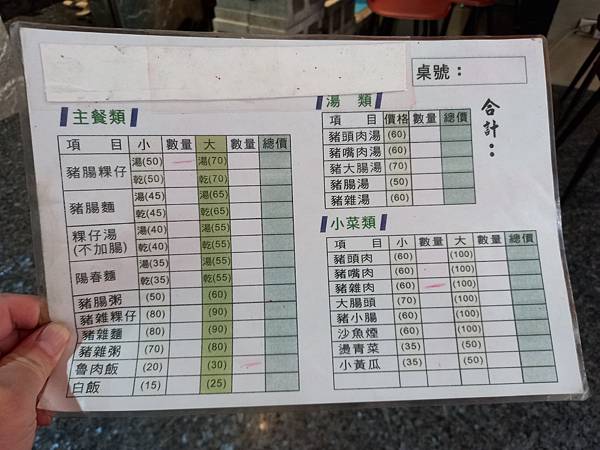 桌號：
合計：
主餐類
項 目 小 數量 大 數量 總價
豬腸粿仔 湯(50) 湯(70)
乾(50) 乾(70)
豬腸麵 湯(45) 湯(65)
乾(45) 乾(65)
粿仔湯 湯(40) 湯(55)
(不加腸) 乾(40) 乾(55)
陽春麵 湯(35) 湯(55)
乾(35) 乾(55)
豬腸粥 (50) (60)
豬雜粿仔 (80) (90)
豬雜麵 (80) (90)
豬雜粥 (70) (80)
魯肉飯 (20) (30)
白飯 (15) (25)
湯 類
項 目 價格 數量 總價
豬頭肉湯 (60)
豬嘴肉湯 (60)
豬大腸湯 (70)
豬腸湯 (50)
豬雜湯 (60)
小菜類
項 目 小 數量 大 數量 總價
豬頭肉 (60) (100)
豬嘴肉 (60) (100)
豬雜肉 (60) (100)
大腸頭 (70) (100)
豬小腸 (60) (100)
沙魚煙 (60) (100)
燙青菜 (35) (50)
小黃瓜 (35) (50)